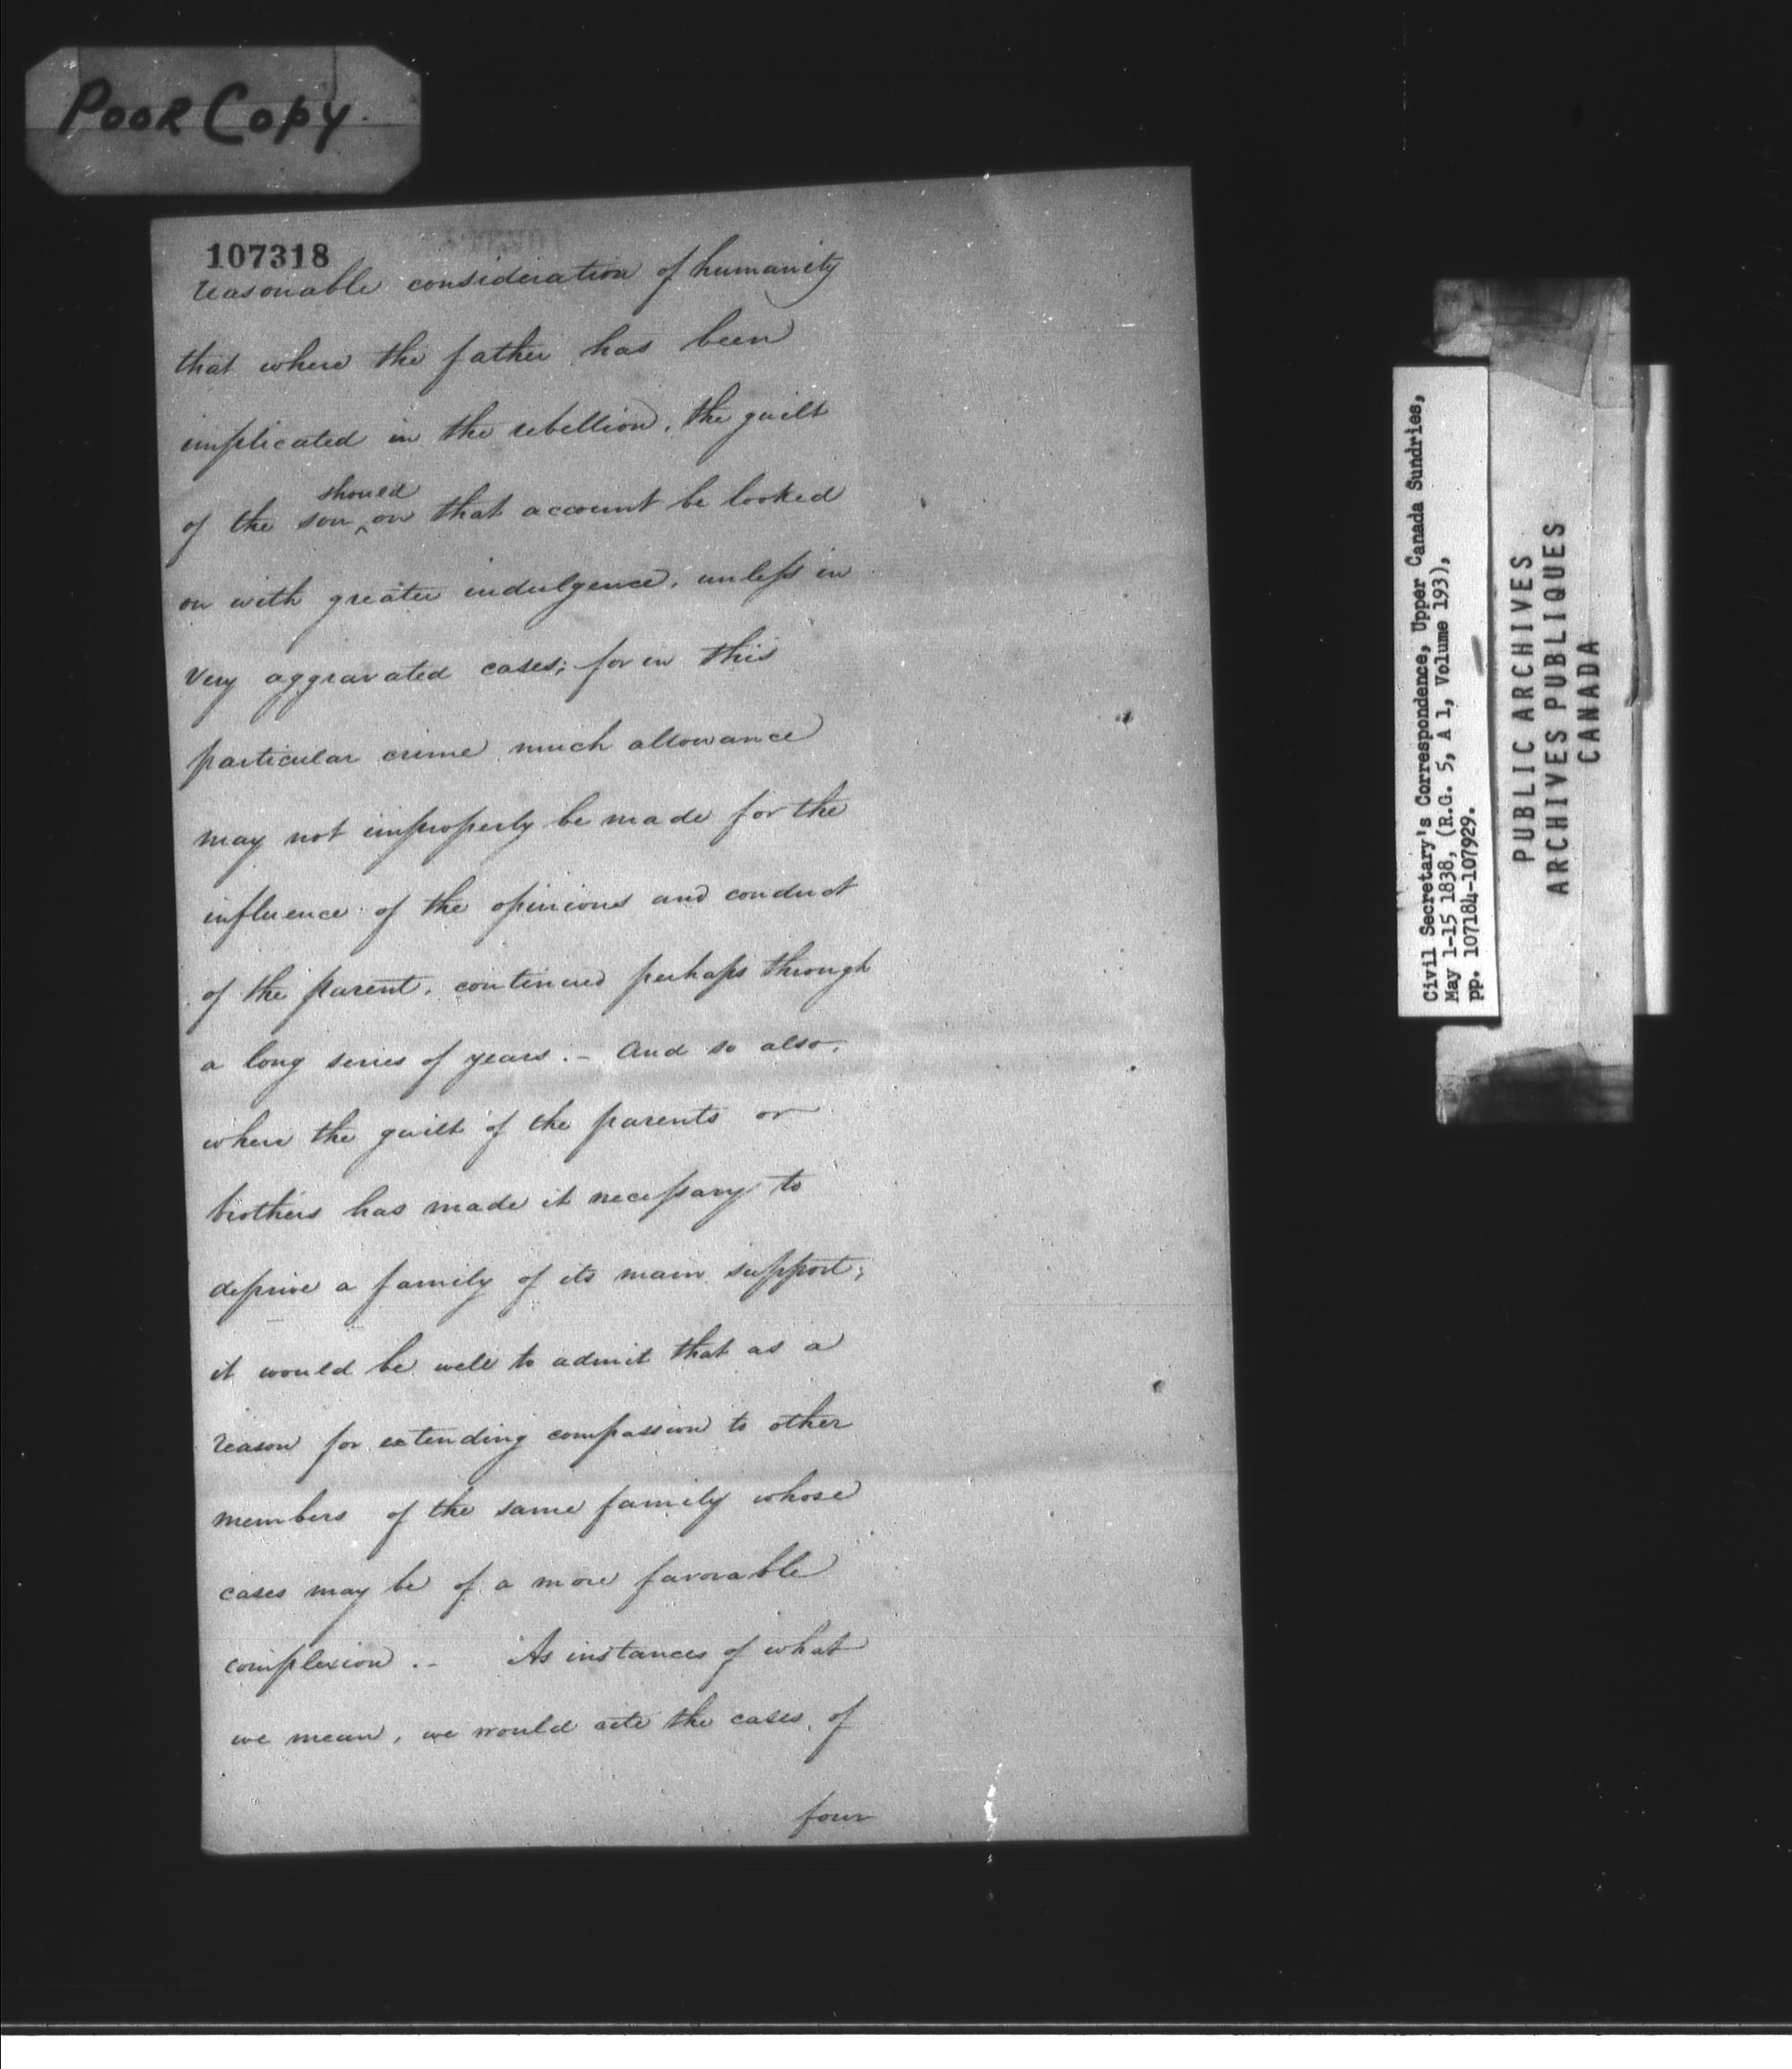 Poor Copy.
107318
reasonable consideration of humanity
that where the father has been
implicated in the rebellion, the guilt
should
of the son ‸ on that account be looked
on with greater indulgence, unless in
very aggravated cases; for in this
particular crime much allowance
may not improperly be made for the
influence of the opinions and conduct
of the parent, continued perhaps through
a long series of years. - And so also,
where the guilt of the parents or
brothers has made it necessary to
deprive a family of its main support;
it would be well to admit that as a
reason for extending compassion to other
members of the same family whose
cases may be of a more favorable
complexion. - As instances of what
we mean, we would cite the cases of
four
Civil Secretary's Correspondence, Upper Canada Sundries,
May 1-15 1838, (R.G. 5, A 1, Volume 193),
pp. 107184-107929.
PUBLIC ARCHIVES
ARCHIVES PUBLIQUES
CANADA